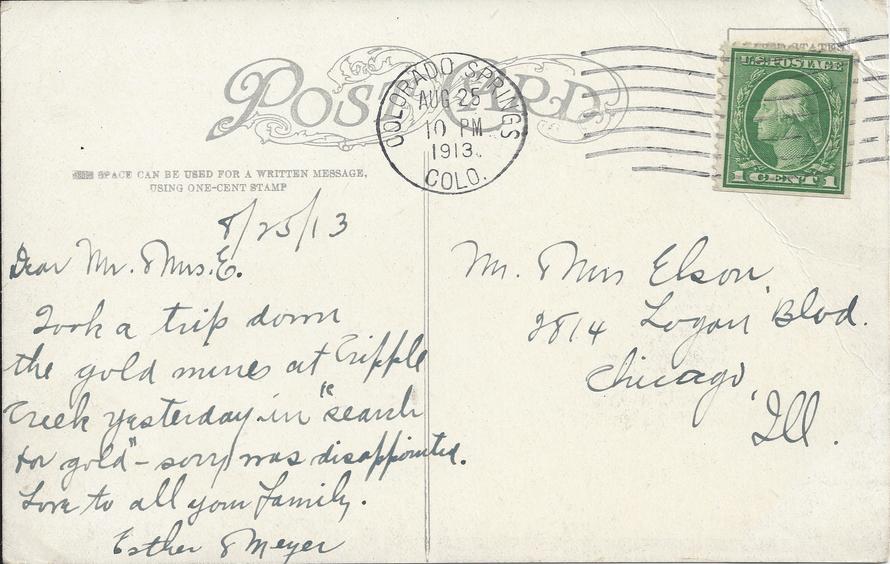 POST CARD
UNITED STATES
U.S. POSTAGE
1 CENT 1
COLORADO SPRINGS
AUG 25
10 PM
1913
COLO.
SPACE CAN BE USED FOR A WRITTEN MESSAGE,
USING ONE-CENT STAMP
8/25/13
Dear Mr. & Mrs. E.
Took a trip down
the gold mines at Cripple
Creek yesterday in "search
for gold" - sorry was disappointed.
Love to all your family.
Esther & Meyer
Mr. & Mrs Elson,
2814 Logan Blvd.
Chicago,
Ill.